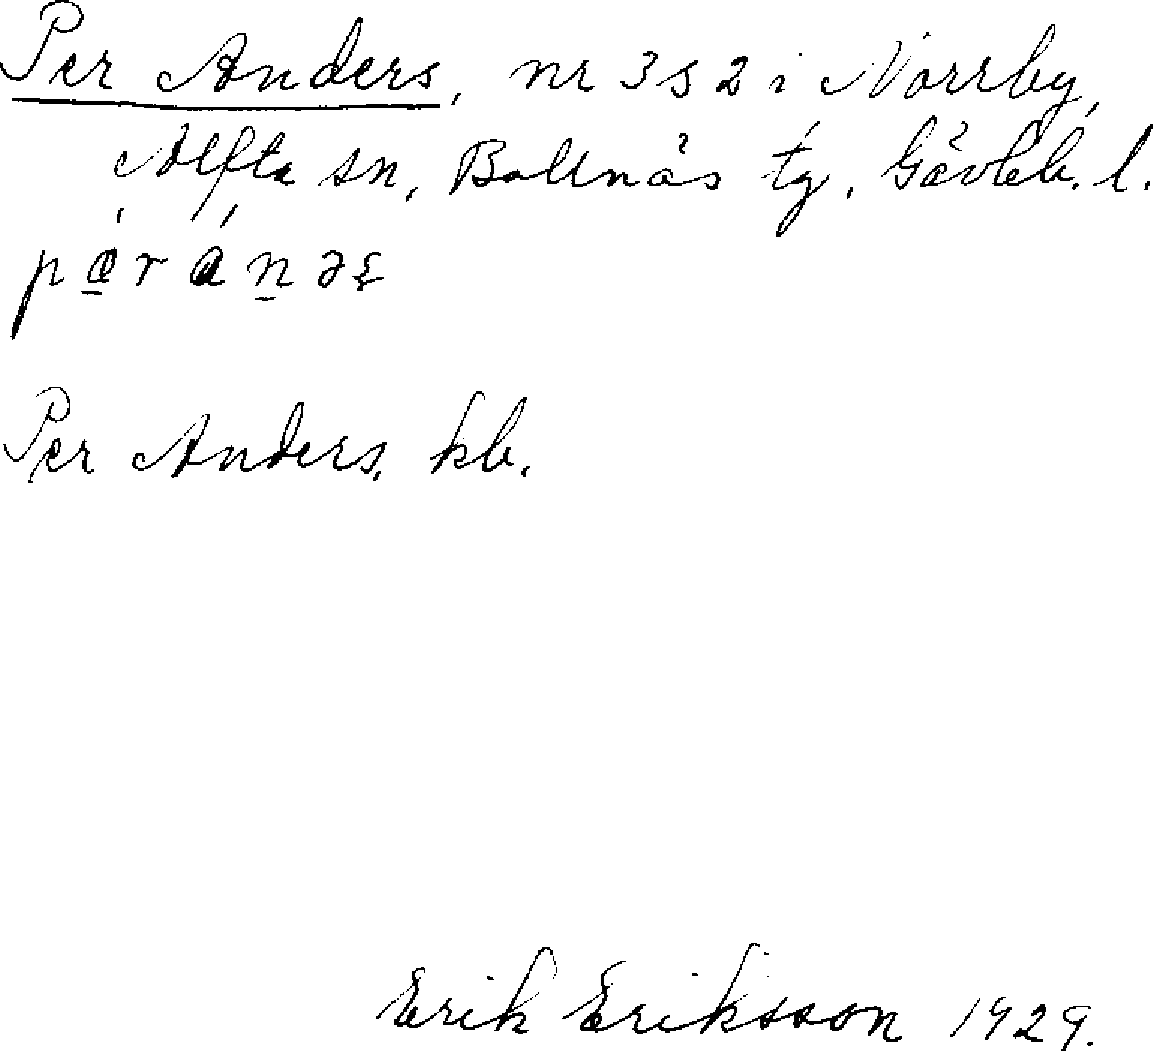 Per Anders, nr 3 s 2 i Norrby,
Alfta sn, Bollnäs tg, Gävleb. l.
Per Anders, kb.
Erik Eriksson 1929.